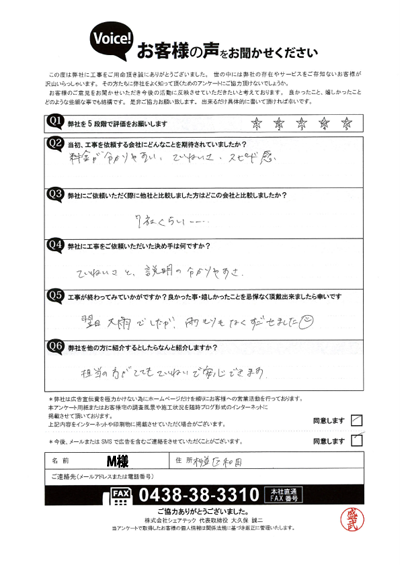 Voice!
お客様の声をお聞かせください
この度は弊社に工事をご用命頂き誠にありがとうございました。世の中には弊社の存在やサービスをご存知ないお客様が
沢山いらっしゃいます。その方たちに弊社をよく知って頂くためのアンケートにご協力頂けないでしょうか。
お客様のご意見をお聞かせいただき今後の活動に反映させていただきたいと考えております。良かったこと、嬉しかったこと
どのような些細な事でも結構です。是非ご協力お願い致します。出来るだけ具体的に書いて頂ければ幸いです。
Q1 弊社を5段階で評価をお願いします ☆ ☆ ☆ ☆ ☆
Q2 当初、工事を依頼する会社にどんなことを期待されていましたか?
料金が分かりやすい、ていねいさ、スピード感
Q3 弊社にご依頼いただく際に他社と比較しました方はどこの会社と比較しましたか?
7社くらい……
Q4 弊社に工事をご依頼いただいた決め手は何ですか?
ていねいさと、説明の分かりやすさ
Q5 工事が終わってみていかがですか?良かった事・嬉しかったことを忌憚なく頂戴出来ましたら幸いです
翌日大雨でしたが、雨もりもなくすごせました
Q6 弊社を他の方に紹介するとしたらなんと紹介しますか?
担当の方がとてもていねいで安心できます
*弊社は広告宣伝費を極力かけない為にホームページだけを頼りにお客様への営業活動を行っております。
本アンケート用紙またはお客様宅の調査風景や施工状況を随時ブログ形式のインターネットに
掲載させて頂いております。
上記内容をインターネットや印刷物に掲載させていただく場合がございます。
同意します ✓
*今後、メールまたは SMS で広告を含むご連絡をさせていただくことがございます。
同意します ✓
名 前 M様 住 所
ご連絡先(メールアドレスまたは電話番号)
FAX 0438-38-3310 本社直通 FAX 番号
ご協力ありがとうございました。
株式会社シェアテック 代表取締役 大久保 誠二
当アンケートで取得したお客様の個人情報は関係法規に基づき厳正に管理いたします。